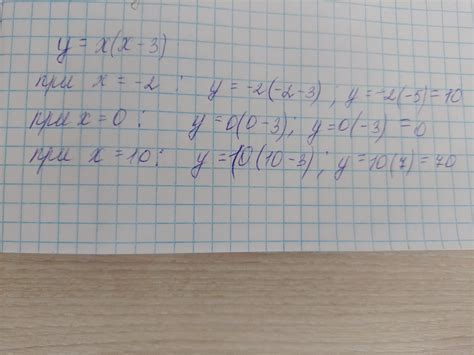 y = x(x-3)
при x = -2 : y = -2(-2-3) , y = -2(-5) = 10
при x = 0 : y = 0(0-3) ; y = 0(-3) = 0
при x = 10 : y = 10(10-3) ; y = 10(7) = 70